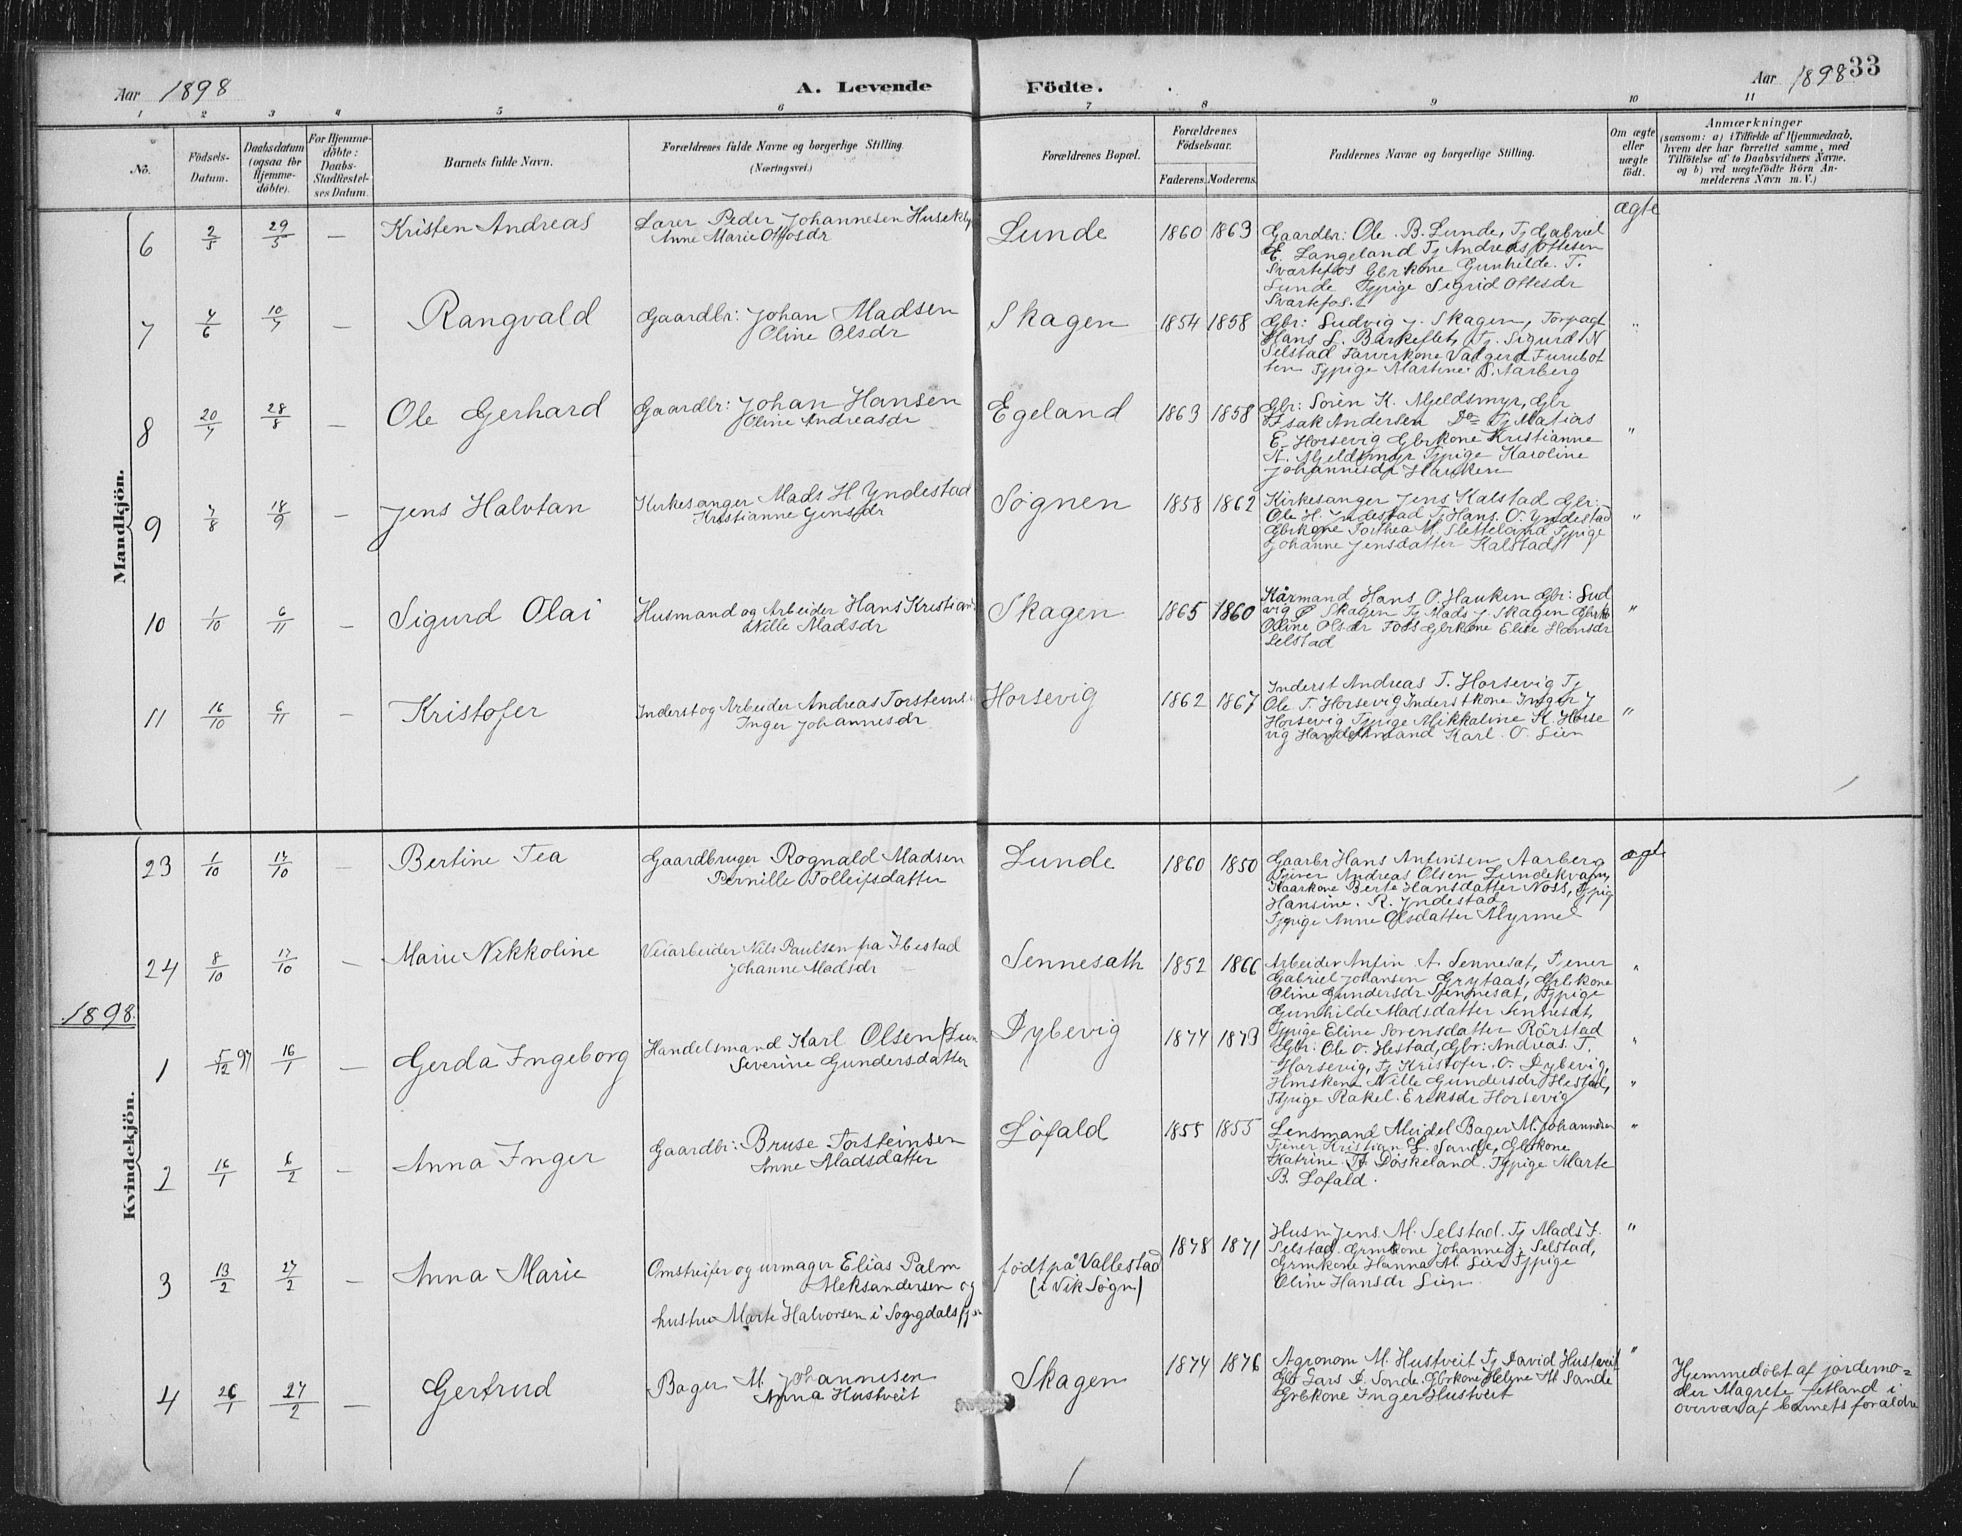 Aar 1898 A. Levende Födte. Aar 1898 33
1 2 3 4 5 6 7 8 9 10 11
No.
Födsels-Datum.
Daabsdatum (ogsaa for Hjemme-döbte).
For Hjemme-döbte: Daabs-Stadfæstel-ses Datum.
Barnets fulde Navn.
Forældrenes fulde Navne og borgerlige Stilling.
(Næringsvei.)
Forældrenes Bopæl.
Forældrenes Födselsaar.
Faderens. Moderens.
Faddernes Navne og borgerlige Stilling.
Om ægte eller uægte födt.
Anmærkninger
(saasom: a) i Tilfælde af Hjemmedaab,
hvem der har forrettet samme, med
Tilföielse af to Daabsvidners Navne,
og b) ved uægtefödte Börn An-
melderens Navn m. V.)
Mandkjön.
6 2/5 29/5 — Kristen Andreas
Lærer Peder Johannesen Husekly
Anne Marie Ottosdr
Lunde 1860 1863
Gaardbr: Ole B. Lunde, Tj Gabriel
E. Langeland Tj Andreas Ottesen
Svartefos Gbrkone Gunhilde. T.
Lunde Tjpige Sigrid Ottesdr
Svartefos.
ægte
7 4/6 10/7 — Rangvald
Gaardbr: Johan Madsen
Oline Olsdr
Skagen 1854 1858
Gbr: Ludvig J. Skagen, Forpagt
Hans L. Barkeflet, Tj. Sigurd N
Selstad Farverkone Valgerd Furubot
ten Tjpige Martine Aarberg
"
8 20/7 28/8 — Ole Gerhard
Gaardbr: Johan Hansen
Oline Andreasdr
Egeland 1863 1858
Gbr: Sören K. Mjeldsmyr, Gbr
Isak Andersen Do Tj Matias
E. Horsevig Gbrkone Kristianne
N. Mjeldsmyr Tjpige Karoline
Johannesdr Hauken
"
9 7/8 18/9 — Jens Halvtan
Kirkesanger Mads H. Yndestad
Kristianne Jensdr
Sognen 1858 1862
Kirkesanger Jens Kalstad Gbr:
Ole H. Yndestad Tj Hans. O. Yndestad
Gbrkone Torthea M. Sletteland Tjpige
Johanne Jensdatter Kalstad
"
10 1/10 6/11 — Sigurd Olai
Husmand og Arbeider Hans Kristian
Nille Madsdr
Skagen 1865 1860
Kårmand Hans O. Hauken Gbr: Lud
vig Skagen Tj Mads J. Skagen Gbrk
Oline Olsdr Foss Gbrkone Elise Hansdr
Selstad
"
11 16/10 6/11 — Kristofer
Inderst og Arbeider Andreas Torsteins
Inger Johannesdr
Horsevig 1862 1867
Inderst Andreas T. Horsevig Tj
Ole T. Horsevig Inderstkone Inger J
Horsevig Tjpige Mikkaline K. Horse
vig Handelsmand Karl. O. Lien
"
Kvindekjön.
23 1/10 17/10 — Bertine Tea
Gaardbruger Rognald Madsen
Pernille Tolleifsdatter
Lunde 1860 1850
Gaarbr Hans Anfinsen Aarberg
Tjener Andreas Olsen Lundekvam,
Kaarkone Berte Hansdatter Noss, Tjpig
Hansine. R. Yndestad
Tjpige Anne Olsdatter Myrmel
ægte
24 8/10 17/10 — Marie Nikkoline
Veiarbeider Nils Paulsen fra Ibestad
Johanne Madsdr
Sennesath 1852 1866
Arbeider Anfin A. Sennesat, Tjener
Gabriel Johansen Grytaas, Gbrkone
Oline Gundersdr Sennesat, Tjpige
Gunhilde Madsdatter Sennesat,
Tjpige Eline Sorensdatter Rörstad
"
1898.
1 5/12 97 16/1 — Gerda Ingeborg
Handelsmand Karl Olsen Lien
Severine Gundersdatter
Dybevig 1874 1873
Gbr: Ole O. Hestad, Gbr: Andreas. T.
Horsevig, Tj Kristofer. O. Dybevig,
Hmskone Nille Gundersdr Hestad,
Tjpige Rakel. Eriksdr Horsevig
" "
2 16/1 6/2 — Anna Inger
Gaardbr: Bruse Torsteinsen
Anne Madsdatter
Lofald 1855 1855
Lensmand Meidel Bager M. Johannesen
Tjener Kristian L. Sande, Gbrkone
Katrine Döskeland. Tjpige Marte
B. Lofald.
"
3 13/2 27/2 — Anna Marie
Omstreifer og urmager Elias Palm
Aleksandersen og
hustru Marte Halvorsen i Sogndalsfjær
født på Vallestad
(i Vik Sogn)
1878 1871
Husm Jens. M. Selstad. Tj Mads F.
Selstad. Grmkone Johanne J. Selstad,
Grmkone Hanna M. Lien Tjpige
Oline Hansdr Lien
"
4 26/1 27/2 — Gertrud
Bager M. Johannesen
Anna Hustveit
Skagen 1874 1876
Agronom M. Hustveit Tj David Hustveit
Gbr Lars D. Sande. Gbrkone Helene M Sande
Gbrkone Inger Hustveit
"
Hjemmedöbt af jordemo-
der Magrete fetland i
overvær af barnets forældre